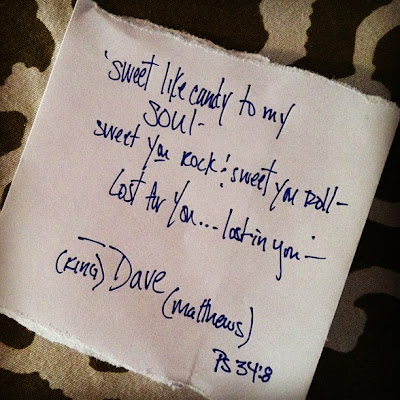 'sweet like candy to my
SOUL-
sweet you ROCK! sweet you ROLL-
Lost for you... lost in you-
(KING) Dave
(matthews)
PS 34:8